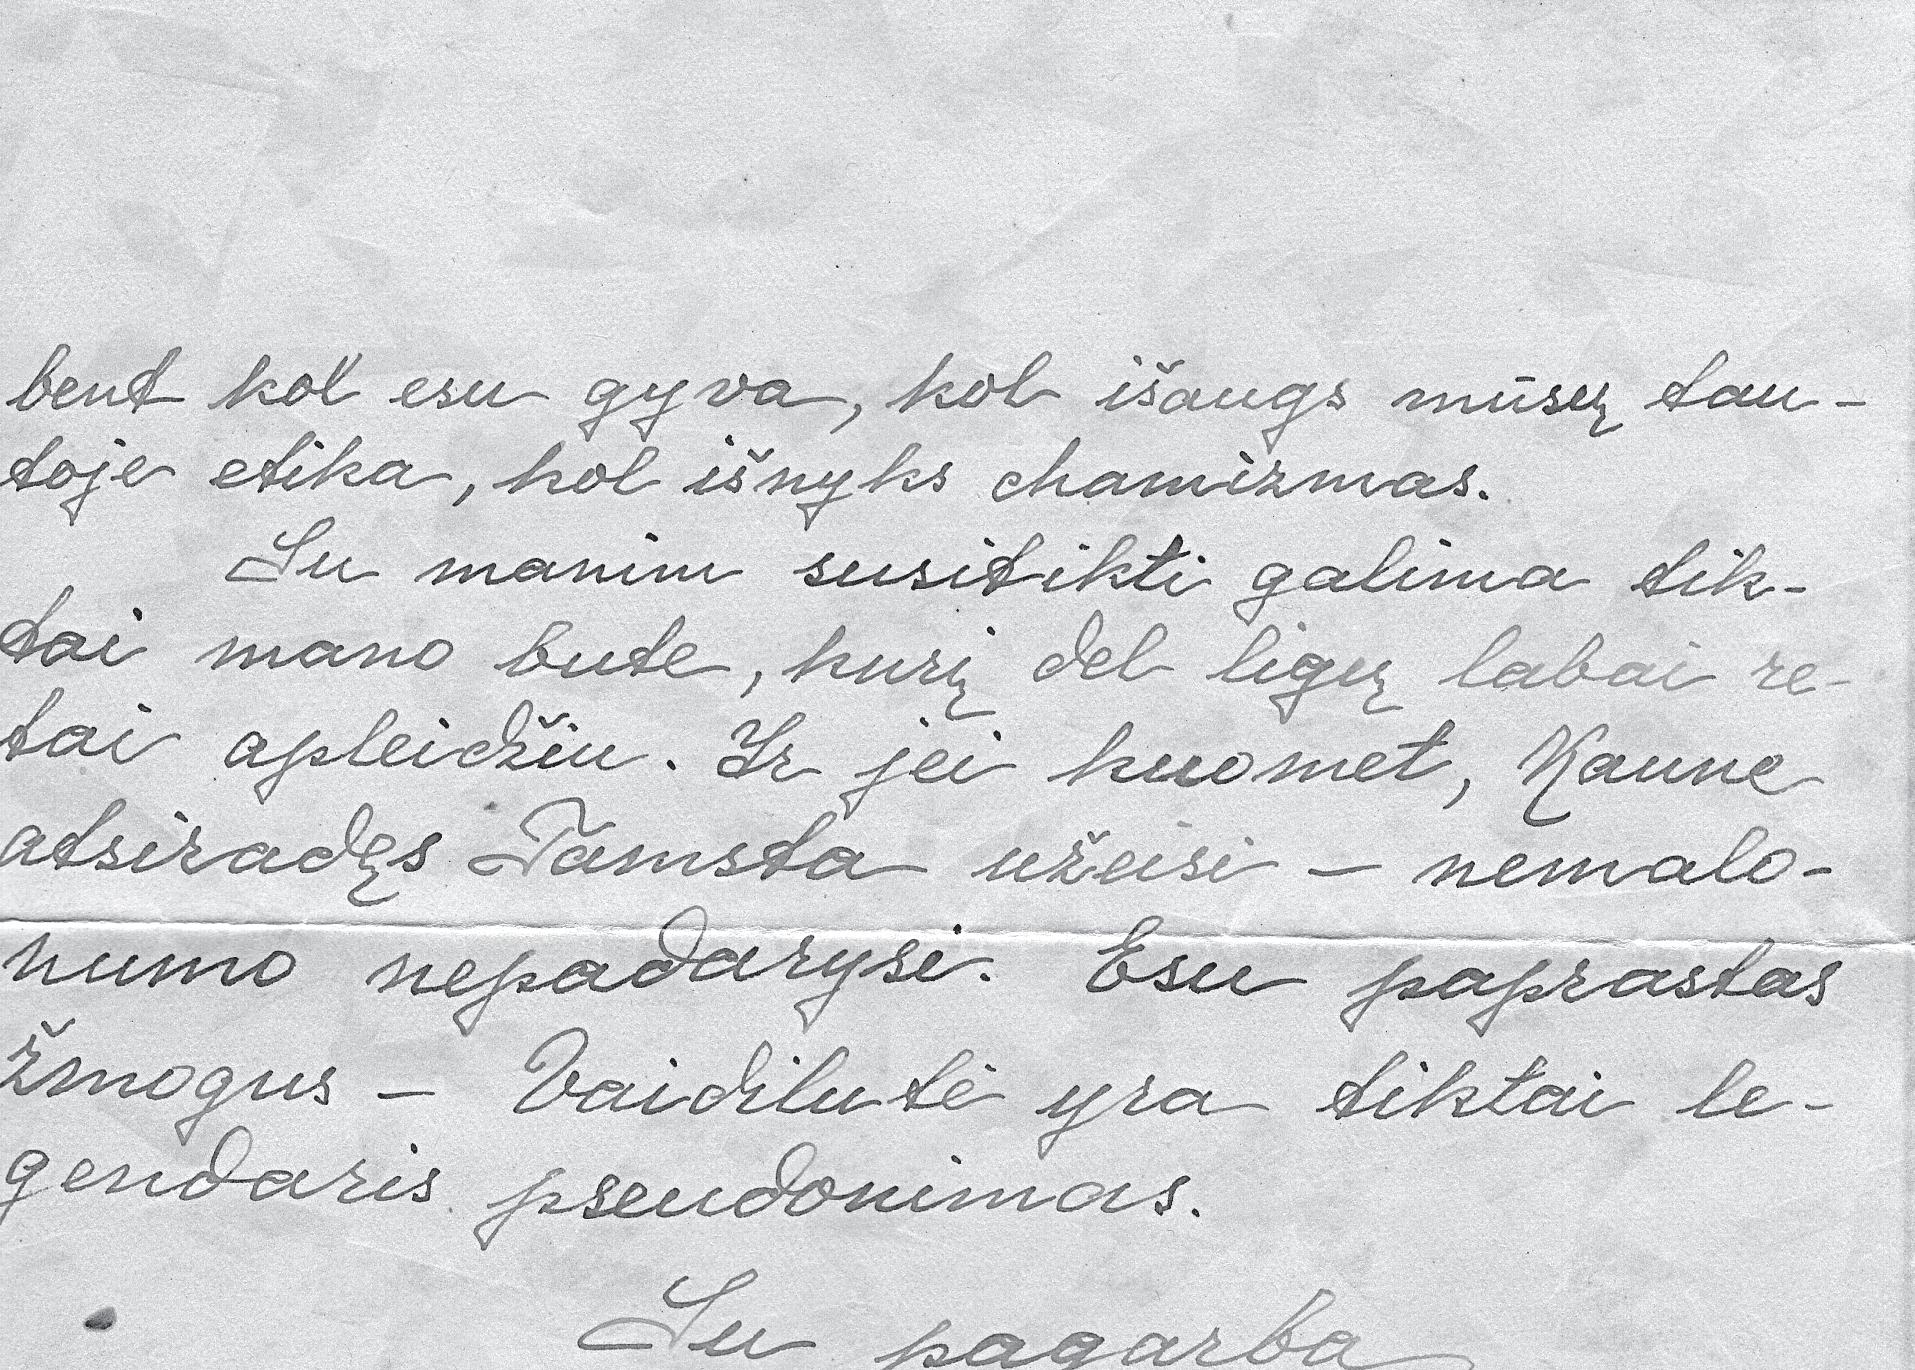 bent kol esu gyva, kol išaugs mūsų tau-
toje etika, kol išnyks chamizmas.
Su manim susitikti galima tik-
tai mano bute, kurį del ligų labai re-
tai apleidžiu. Ir jei kuomet, Kaune
atsiradęs Tamsta užeisi – nemalo-
numo nepadarysi. Esu paprastas
žmogus – Vaidilutė yra tiktai le-
gendaris pseudonimas.
Su pagarba